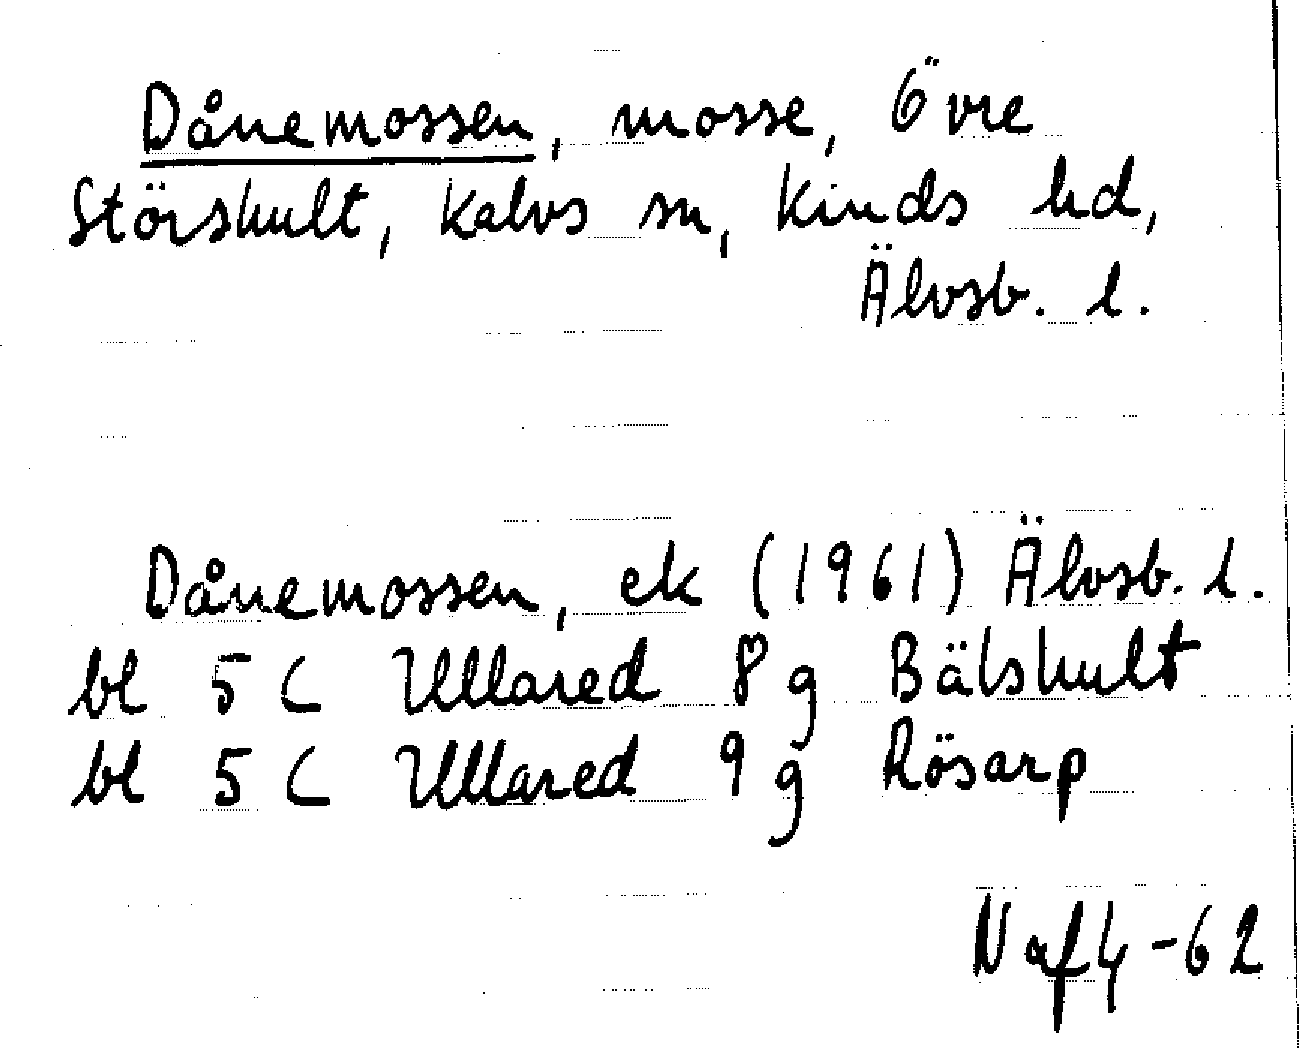 Dånemossen, mosse, Övre
Störshult, Kalvs sn, Kinds hd,
Älvsb. l.
Dånemossen, ek (1961) Älvsb. l.
bl 5 C Ullared 8 g Bälshult
bl 5 C Ullared 9 g Rösarp
N af 4 -62